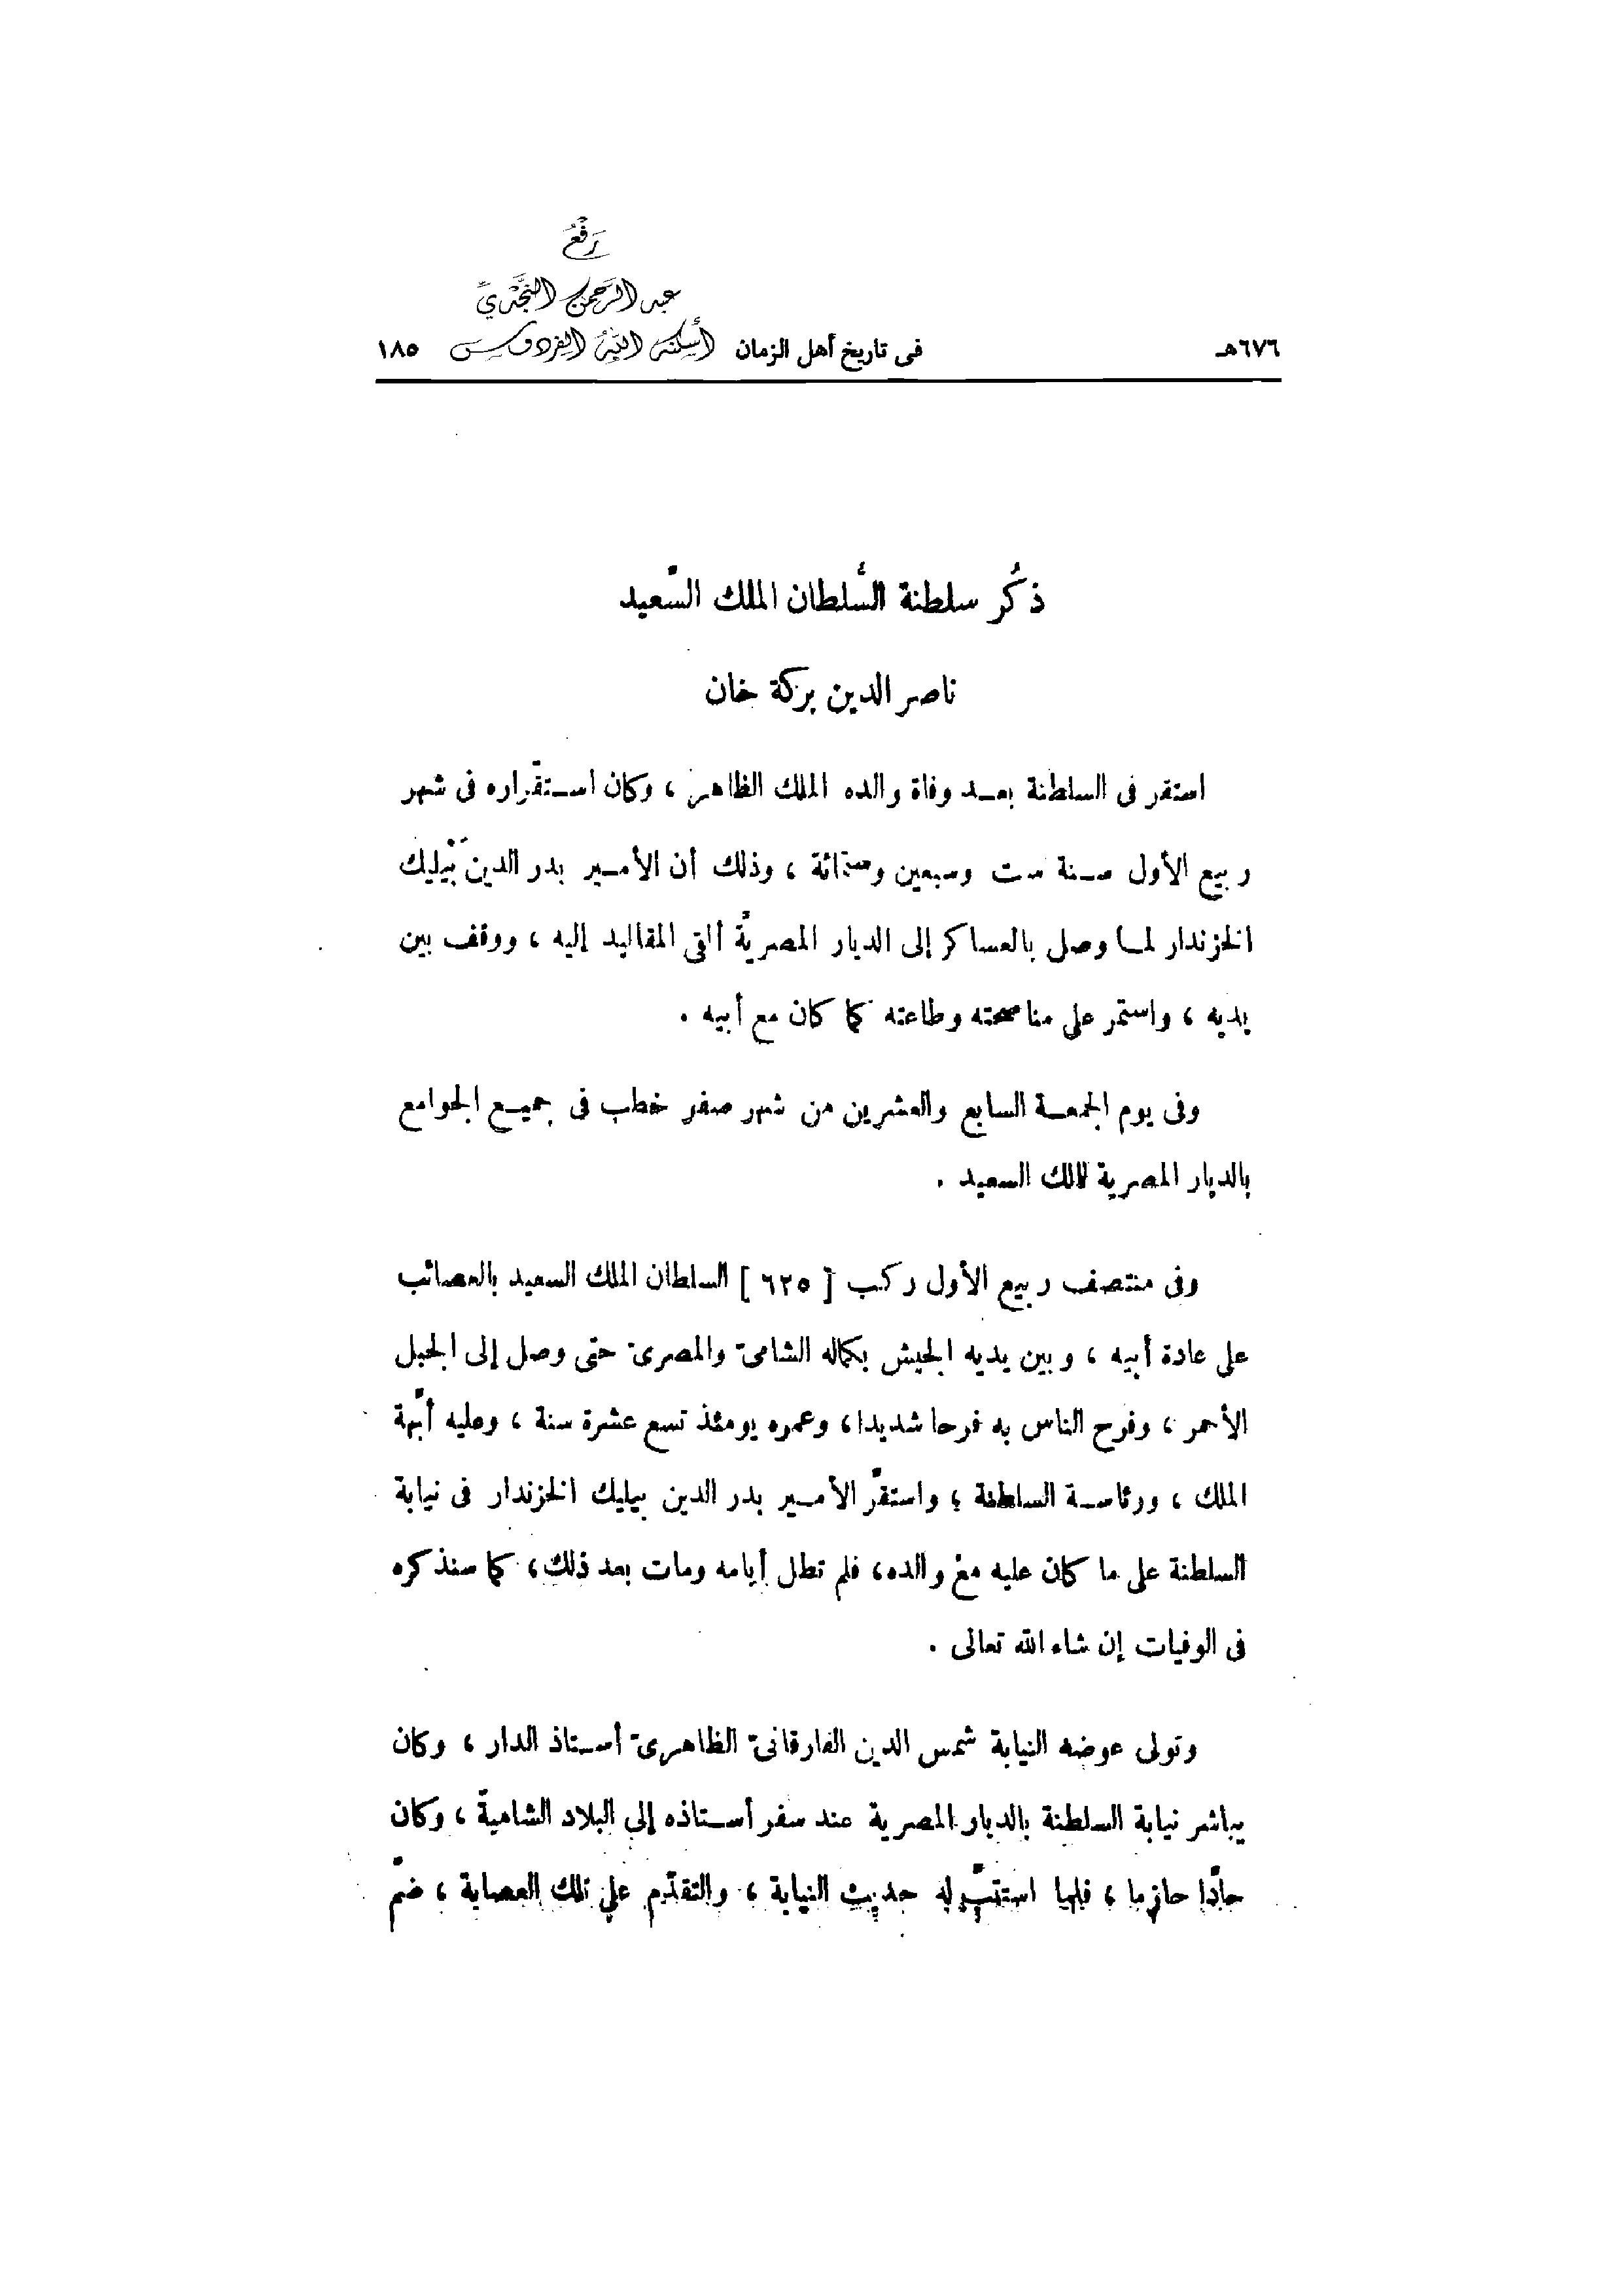 رَفْعُ
عبد الرَّحمن النَّجْديّ
أسكنه اللّه الفردوس
٦٧٦هـ
فى تاريخ أهل الزمان
١٨٥
ذكُر سلطنة السُّلطان الملك السَّعيد
ناصر الدين بركة خان
استقر فى السلطنة بعد وفاة والده الملك الظاهر ، وكان استقّراره فى شهر
ربيع الأول سنة ست وسبعين وستمائة ، وذلك أن الأمير بدر الدين بَيْليك
الخزندار لما وصل بالعساكر إلى الديار المصريّة ألقى المقاليد إليه ، ووقف بين
يديه ، واستمر على مناصحته وطاعته كما كان مع أبيه .
وفى يوم الجمعة السابع والعشرين من شهر صفر خطب فى جميع الجوامع
بالديار المصرية للملك السعيد .
وفى منتصف ربيع الأول ركب [ ٦٢٥ ] السلطان الملك السعيد بالعصائب
على عادة أبيه ، وبين يديه الجيش بكماله الشامىّ والمصرىّ حتى وصل إلى الجبل
الأحمر ، وفرح الناس به فرحا شديدا ، وعمره يومئذ تسع عشرة سنة ، وعليه أبّهة
الملك ، ورئاسة السلطنة ؛ واستقرّ الأمير بدر الدين بيليك الخزندار فى نيابة
السلطنة على ما كان عليه مع والده ، فلم تطل أيامه ومات بعد ذلك ، كما سنذكره
فى الوفيات إن شاء الله تعالى .
وتولى عوضه النيابة شمس الدين الفارقانىّ الظاهرىّ أستاذ الدار ، وكان
يباشر نيابة السلطنة بالديار المصرية عند سفر أستاذه إلى البلاد الشاميّة ، وكان
حادّا حازما ، فلما استتبّ له حديث النيابة ، والتقدّم على تلك العصابة ، ضمّ